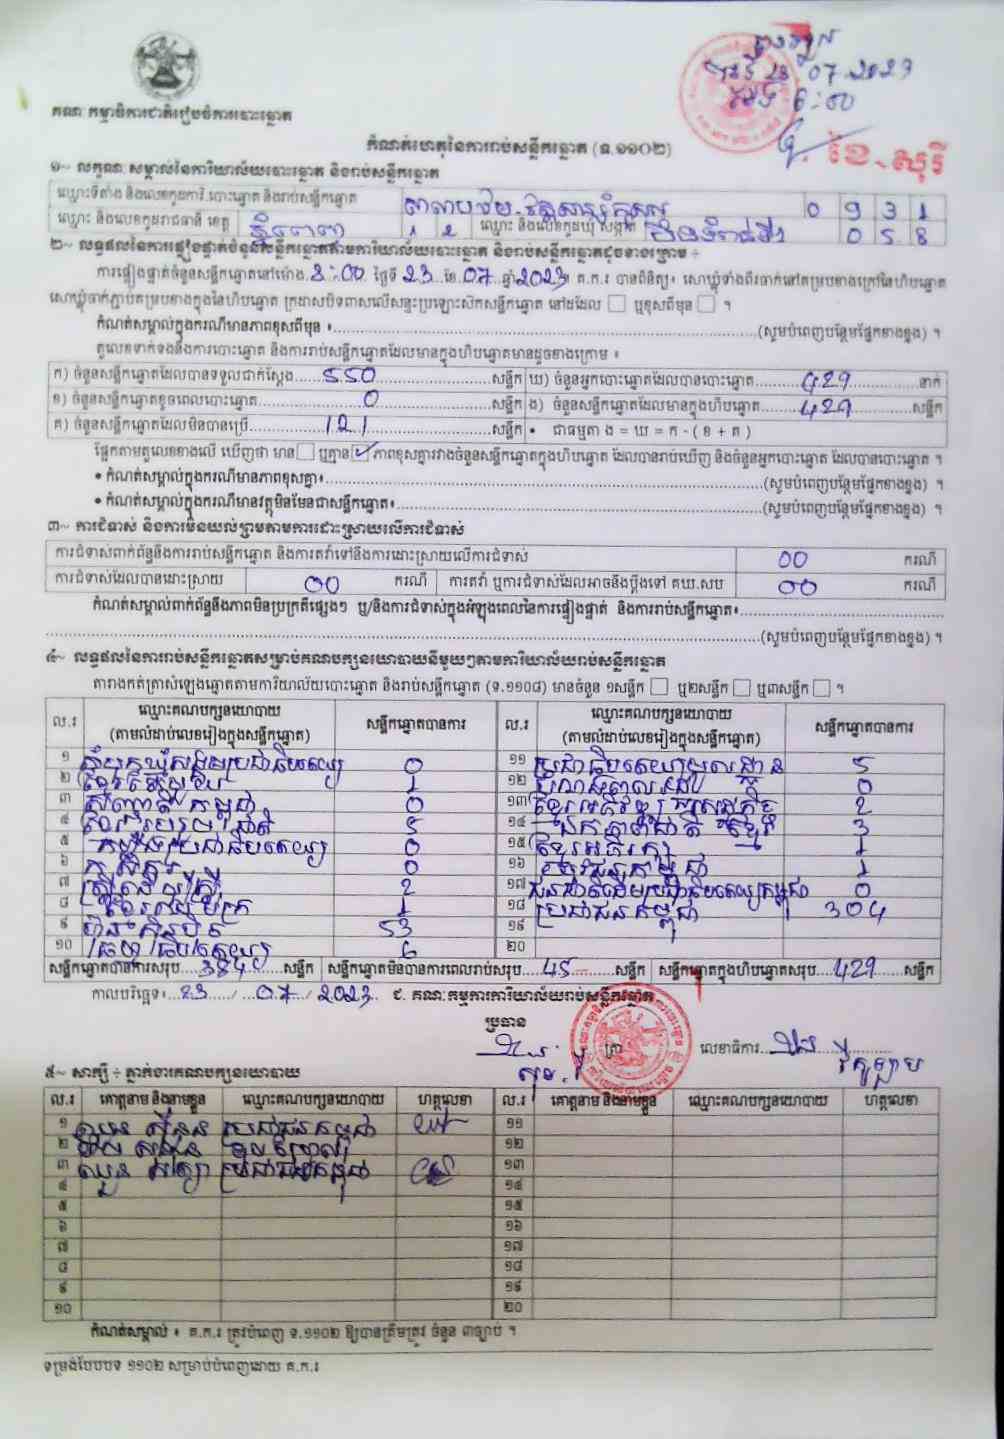 គណៈកម្មាធិការជាតិរៀបចំការបោះឆ្នោត
23 07 2023
6:00
កំណត់ហេតុនៃការរាប់សន្លឹកឆ្នោត (ទ.១១០២)
១~ លក្ខណៈសម្គាល់នៃការិយាល័យបោះឆ្នោត និងរាប់សន្លឹកឆ្នោត
ឈ្មោះទីតាំង និងលេខកូដការិ.បោះឆ្នោត និងរាប់សន្លឹកឆ្នោត 0 9 3 1
ឈ្មោះ និងលេខកូដរាជធានី ខេត្ត ភ្នំពេញ 1 2 ឈ្មោះ និងលេខកូដឃុំ សង្កាត់ 0 5 8
២~ លទ្ធផលនៃការផ្ទៀងផ្ទាត់ចំនួនសន្លឹកឆ្នោតតាមការិយាល័យបោះឆ្នោត និងរាប់សន្លឹកឆ្នោតដូចខាងក្រោម ÷
ការផ្ទៀងផ្ទាត់ចំនួនសន្លឹកឆ្នោតនៅម៉ោង 3:00 ថ្ងៃទី 23 ខែ 07 ឆ្នាំ 2023 គ.ក.រ បានពិនិត្យ៖ សោឃ្លុំទាំងពីរចាក់នៅគម្របខាងក្រៅនៃហិបឆ្នោត
សោឃ្លុំចាក់ភ្ជាប់គម្របខាងក្នុងនៃហិបឆ្នោត ក្រដាសបិទពាសលើសន្ទះប្រឡោះស៊កសន្លឹកឆ្នោត នៅដដែល ឬខុសពីមុន ។
កំណត់សម្គាល់ក្នុងករណីមានភាពខុសពីមុន ៖ (សូមបំពេញបន្ថែមផ្នែកខាងខ្នង) ។
តួលេខទាក់ទងនឹងការបោះឆ្នោត និងការរាប់សន្លឹកឆ្នោតដែលមានក្នុងហិបឆ្នោតមានដូចខាងក្រោម ៖
ក) ចំនួនសន្លឹកឆ្នោតដែលបានទទួលជាក់ស្តែង 550 សន្លឹក ឃ) ចំនួនអ្នកបោះឆ្នោតដែលបានបោះឆ្នោត 429 នាក់
ខ) ចំនួនសន្លឹកឆ្នោតខូចពេលបោះឆ្នោត 0 សន្លឹក ង) ចំនួនសន្លឹកឆ្នោតដែលមានក្នុងហិបឆ្នោត 429 សន្លឹក
គ) ចំនួនសន្លឹកឆ្នោតដែលមិនបានប្រើ 121 សន្លឹក • ជាធម្មតា ង = ឃ = ក - ( ខ + គ )
ផ្អែកតាមតួលេខខាងលើ ឃើញថា មាន ឬគ្មាន ✓ ភាពខុសគ្នារវាងចំនួនសន្លឹកឆ្នោតក្នុងហិបឆ្នោត ដែលបានរាប់ឃើញ និងចំនួនអ្នកបោះឆ្នោត ដែលបានបោះឆ្នោត ។
• កំណត់សម្គាល់ក្នុងករណីមានភាពខុសគ្នា៖ (សូមបំពេញបន្ថែមផ្នែកខាងខ្នង) ។
• កំណត់សម្គាល់ក្នុងករណីមានវត្ថុមិនមែនជាសន្លឹកឆ្នោត៖ (សូមបំពេញបន្ថែមផ្នែកខាងខ្នង) ។
៣~ ការជំទាស់ និងការមិនយល់ព្រមតាមការដោះស្រាយលើការជំទាស់
ការជំទាស់ពាក់ព័ន្ធនឹងការរាប់សន្លឹកឆ្នោត និងការតវ៉ាទៅនឹងការដោះស្រាយលើការជំទាស់ 00 ករណី
ការជំទាស់ដែលបានដោះស្រាយ 00 ករណី ការតវ៉ា ឬការជំទាស់ដែលអាចនឹងប្តឹងទៅ គឃ.សប 00 ករណី
កំណត់សម្គាល់ពាក់ព័ន្ធនឹងភាពមិនប្រក្រតីផ្សេងៗ ឬ/និងការជំទាស់ក្នុងអំឡុងពេលនៃការផ្ទៀងផ្ទាត់ និងការរាប់សន្លឹកឆ្នោត៖
(សូមបំពេញបន្ថែមផ្នែកខាងខ្នង) ។
៤~ លទ្ធផលនៃការរាប់សន្លឹកឆ្នោតសម្រាប់គណបក្សនយោបាយនីមួយៗតាមការិយាល័យរាប់សន្លឹកឆ្នោត
តារាងកត់ត្រាសំឡេងឆ្នោតតាមការិយាល័យបោះឆ្នោត និងរាប់សន្លឹកឆ្នោត (ទ.១១០៨) មានចំនួន ១សន្លឹក ឬ២សន្លឹក ឬ៣សន្លឹក ។
ល.រ ឈ្មោះគណបក្សនយោបាយ (តាមលំដាប់លេខរៀងក្នុងសន្លឹកឆ្នោត) សន្លឹកឆ្នោតបានការ ល.រ ឈ្មោះគណបក្សនយោបាយ (តាមលំដាប់លេខរៀងក្នុងសន្លឹកឆ្នោត) សន្លឹកឆ្នោតបានការ
១ សំបុកឃ្មុំសង្គមប្រជាធិបតេយ្យ 0 ១១ ប្រជាធិបតេយ្យមូលដ្ឋាន 5
២ 1 ១២ 0
៣ កម្ពុជា 0 ១៣ ខ្មែរអភិវឌ្ឍន៍សេដ្ឋកិច្ច 2
៤ ខ្មែររួបរួមជាតិ 5 ១៤ ឯកភាពជាតិខ្មែរ 3
៥ កម្ពុជា ប្រជាធិបតេយ្យ 0 ១៥ ខ្មែរអភិរក្ស 1
៦ កសិករ 0 ១៦ 1
៧ ស្ត្រីដើម្បីស្ត្រី 2 ១៧ ជនជាតិដើមប្រជាធិបតេយ្យកម្ពុជា 0
៨ 1 ១៨ ប្រជាជនកម្ពុជា 304
៩ ហ្វ៊ុនស៊ិនប៉ិច 53 ១៩
១០ 6 ២០
សន្លឹកឆ្នោតបានការសរុប 384 សន្លឹក សន្លឹកឆ្នោតមិនបានការពេលរាប់សរុប 45 សន្លឹក សន្លឹកឆ្នោតក្នុងហិបឆ្នោតសរុប 429 សន្លឹក
កាលបរិច្ឆេទ៖ 23 / 07 / 2023 ជ. គណៈកម្មការការិយាល័យរាប់សន្លឹកឆ្នោត
ប្រធាន
ត្រា លេខាធិការ
៥~ សាក្សី ÷ ភ្នាក់ងារគណបក្សនយោបាយ
ល.រ គោត្តនាម និងនាមខ្លួន ឈ្មោះគណបក្សនយោបាយ ហត្ថលេខា ល.រ គោត្តនាម និងនាមខ្លួន ឈ្មោះគណបក្សនយោបាយ ហត្ថលេខា
១ ប្រជាជនកម្ពុជា ១១
២ ១២
៣ ប្រជាជនកម្ពុជា ១៣
៤ ១៤
៥ ១៥
៦ ១៦
៧ ១៧
៨ ១៨
៩ ១៩
១០ ២០
កំណត់សម្គាល់ ៖ គ.ក.រ ត្រូវបំពេញ ទ.១១០២ ឱ្យបានត្រឹមត្រូវ ចំនួន ៣ច្បាប់ ។
ទម្រង់បែបបទ ១១០២ សម្រាប់បំពេញដោយ គ.ក.រ